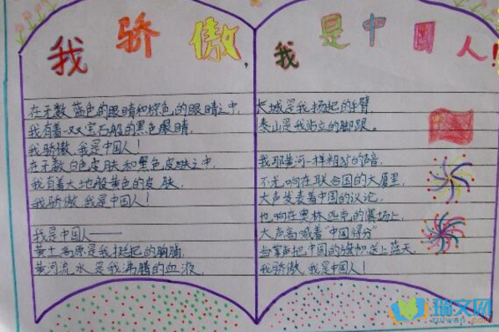 我骄傲，我是中国人！
在无数蓝色的眼睛和棕色的眼睛之中，
我有着一双宝石般的黑色眼睛，
我骄傲，我是中国人！
在无数白色皮肤和黑色皮肤之中，
我有着大地般黄色的皮肤，
我骄傲，我是中国人！
我是中国人——
黄土高原是我挺起的胸脯，
黄河流水是我沸腾的血液，
长城是我扬起的手臂，
泰山是我站立的脚跟。
我那黄河一样粗犷的
不光响在联合国的大厦里，
大声发表着中国的议论，
也响在奥林匹克的赛场上，
大声高喊着"中国得分"
当掌声把中国的旗帜送上蓝天，
我骄傲，我是中国人！
瑞文网